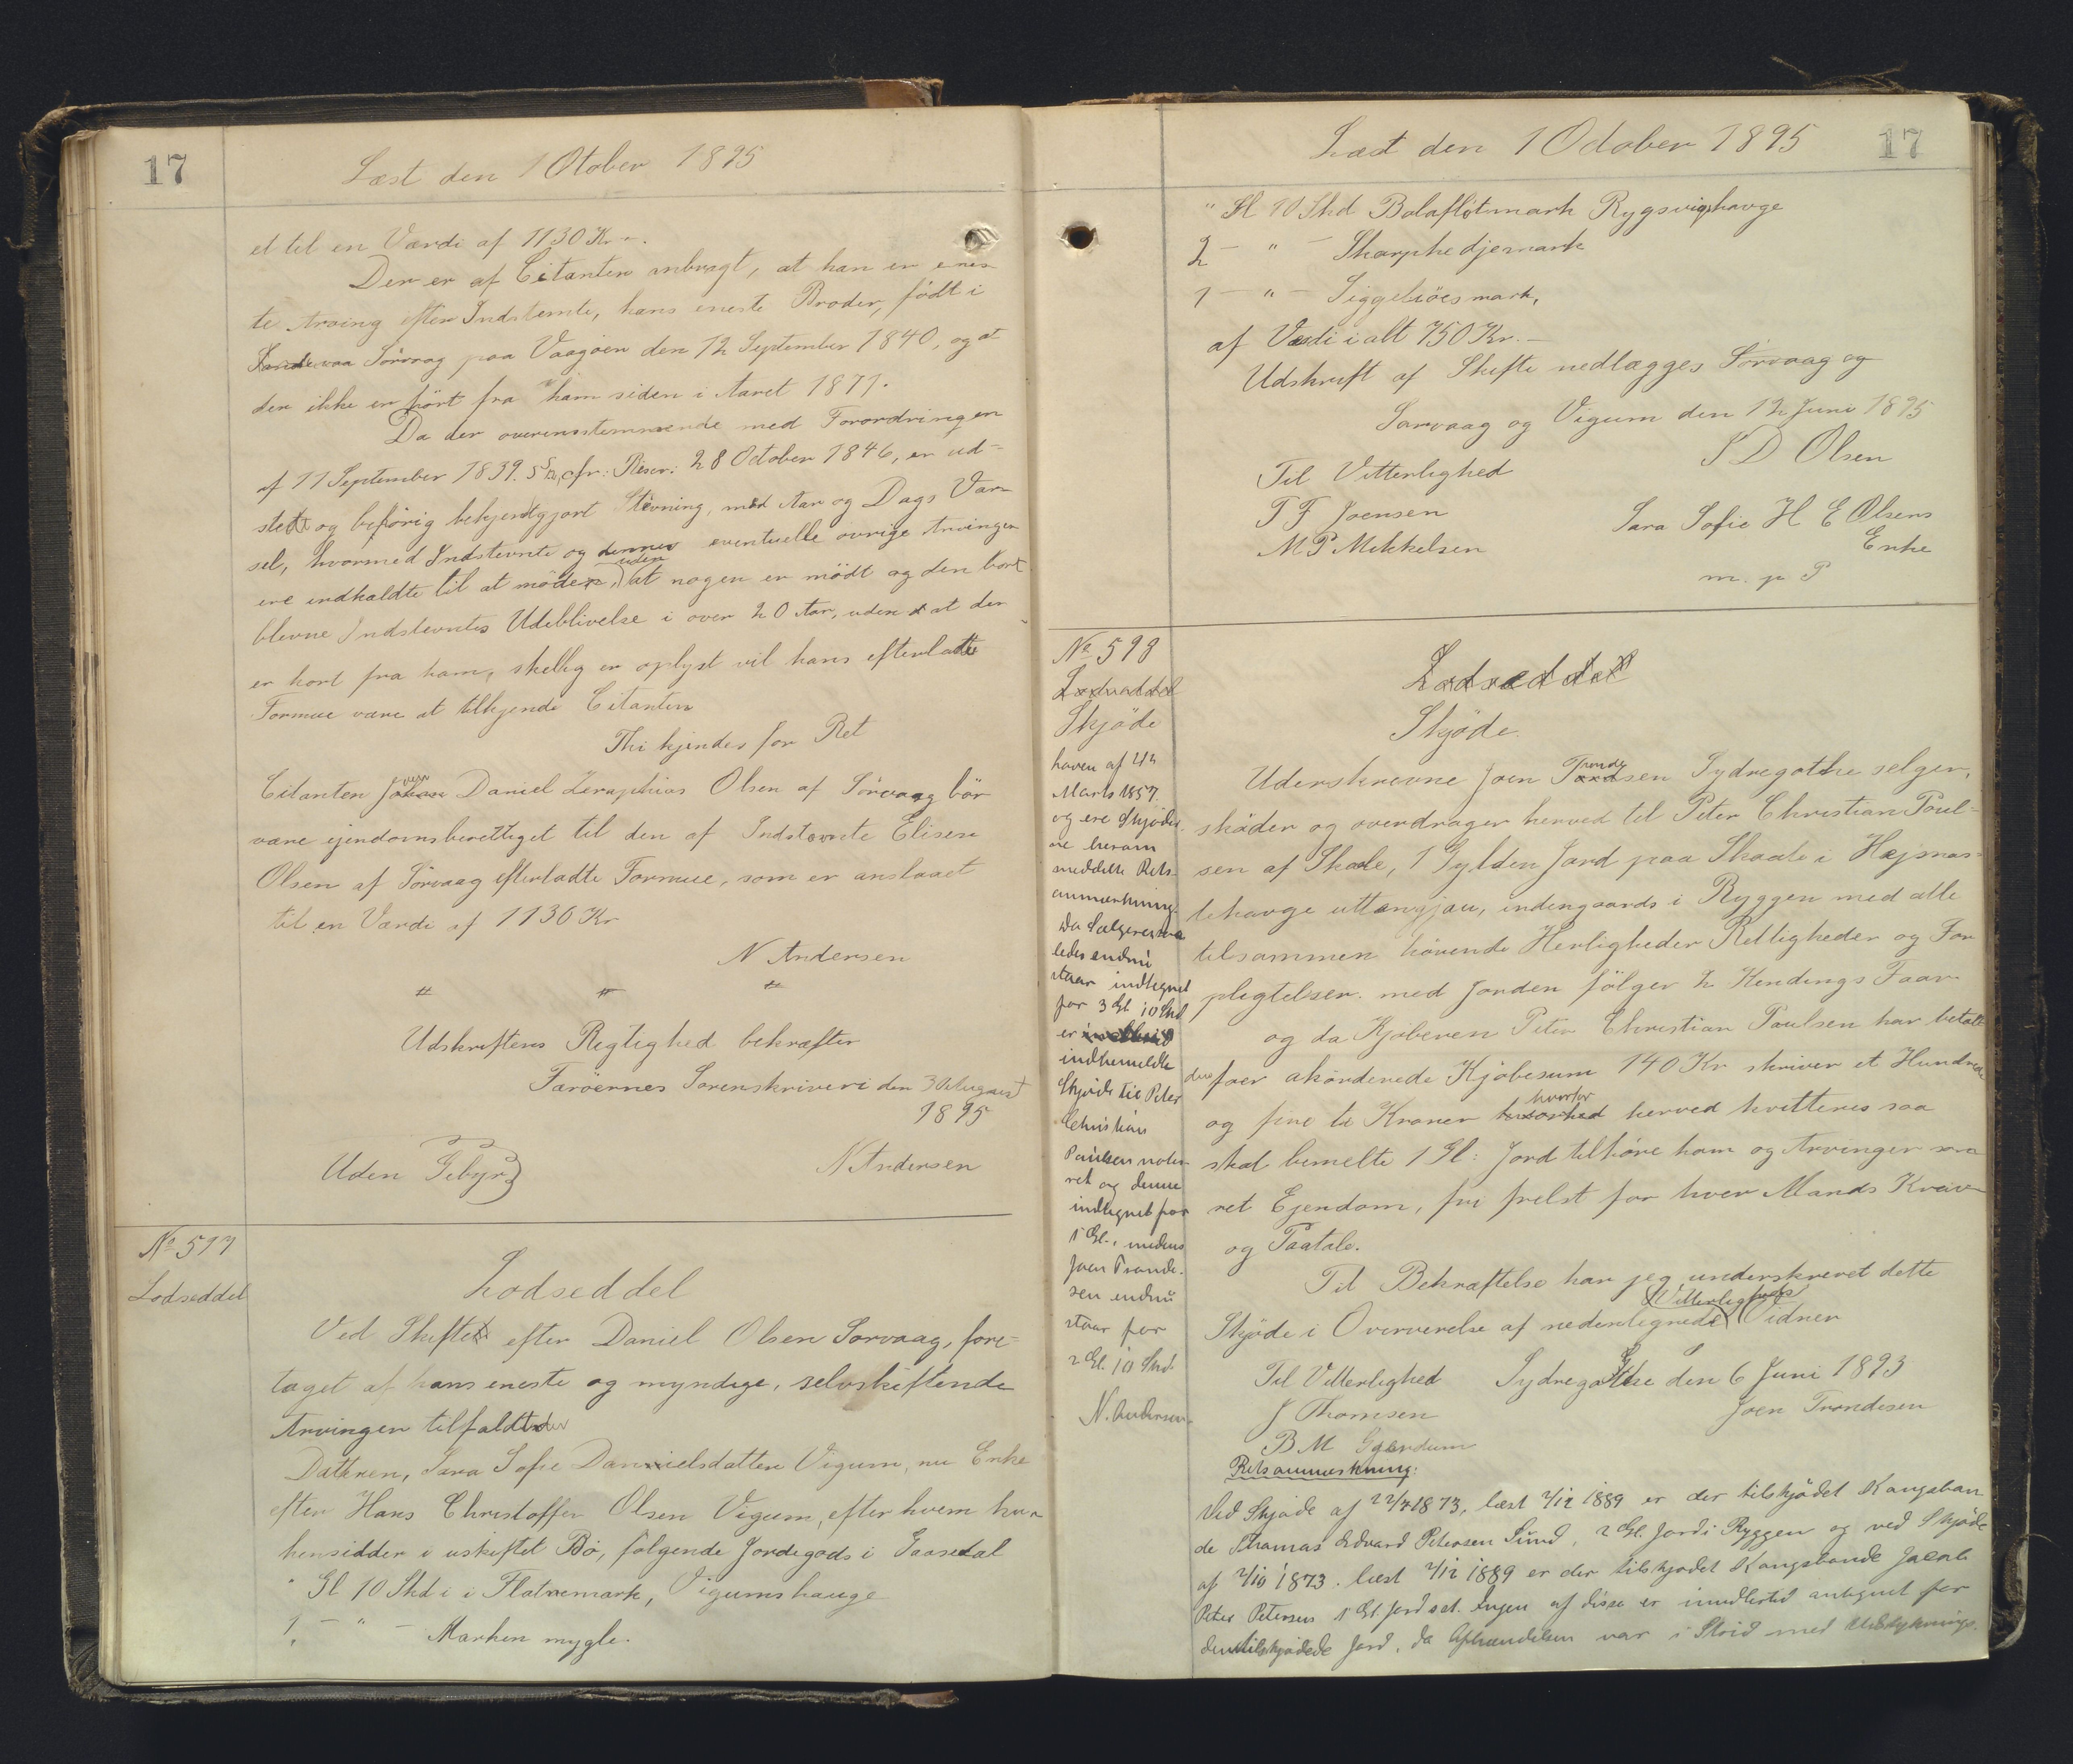 17
Læst den 1 Otober 1895
et til en Værdi af 1130 Kr.
Der er af Citanten anbragt, at han er enes
te Arving efter Indstevnte, hans eneste Broder, født i
Sörvag paa Vaagöen den 12 September 1840, og at
der ikke er hört fra ham siden i Aaret 1871.
Da der overensstemmende med Forordningen
af 11 September 1839. § cfr: Rescr: 28 October 1846, er ud-
stedt og behörig bekjendtgjort Stevning, med Aar og Dags Var-
sel, hvormed Indstevnte og dennes eventuelle övrige Arvinger
ere indkaldte til at möde, uden at nogen er mödt og den bort
blevne Indstevntes Udeblivelse i over 20 Aar, uden at der
er hört fra ham, skellig er oplyst vil hans efterladte
Formue være at tilkjende Citanten
Thi kjendes for Ret
Citanten Joen Daniel Zeraphias Olsen af Sörvaag bör
være ejendomsberettiget til den af Indstevnte Elisen
Olsen af Sörvaag efterladte Formue, som er anslaaet
til en Værdi af 1130 Kr
N Andersen
Udskriftens Rigtighed bekræfter
Færöernes Sorenskriveri den 3 August
1895
Uden Gebyr
N Andersen
No 517
Lodseddel
Lodseddel
Ved Skiftet efter Daniel Olsen Sorvaag, fore-
taget af hans eneste og myndige, selvskiftende
Arvinger tilfaldt
Datteren, Sara Sofie Danielsdatter Vigum, nu Enke
efter Hans Christoffer Olsen Vigum, efter hvem hun
hensidder i uskiftet Bo, fölgende Jordegods i Gaasedal
" Gl 10 Skd i Flatnemark, Vigumshauge
1 - " - Marken mygle.
Læst den 1 October 1895
17
" Gl 10 Skd Bolaflötmark Rygsvigshavge
2 - " - Skarphedjemark
1 - " - Siggeböesmark,
af Værdi ialt 750 Kr.-
Udskrift af Skifte nedlægges Sörvaag og
Sørvaag og Vigum den 12 Juni 1895
J D Olsen
Til Vitterlighed
T F Joensen
M P Mikkelsen
Sara Sofie H C Olsens
Enke
m. p P
No 598
Lodseddel
Skjöde
haven af 4/12
Marts 1857.
og ere Skjöder
ne herom
meddelte Rets-
anmærkning.
Da Sælgeren saa
ledes endnu
staar indtegnet
for 3 Gl 10 Skd
er
indbemeldte
Skjöde til Peter
Christian
Paulsen note-
ret og denne
indtegnet for
1 Gl., medens
Joen Tronde-
sen endnu
staar for
2 Gl. 10 Skd
N. Andersen
Lodseddel
Skjöde
Underskrevne Joen Trondesen Sydregöthe selger,
sköder og overdrager herved til Peter Christian Poul-
sen af Skaale, 1 Gylden Jord paa Skaale i Hajmas-
tehavge uttangjau, indengaards i Ryggen med alle
tilsammen hörende Herligheder Rettigheder og For
pligtelser. med Jorden fölger 2 Kendings Faar
og da Kjöberen Peter Christian Paulsen har betalt
den foer akorderede Kjöbesum 140 Kr skriver et Hundrede
og fire ti Kroner hvorfor herved kvitteres saa
skal bemelte 1 Gl: Jord tilhöre ham og Arvinger som
ret Ejendom, fri frelst for hver Mands Krav
og Paatale.
Til Bekræftelse har jeg underskrevet dette
Skjöde i Oververelse af nedentegnede Vitterligheds Vidner
Til Vitterlighed Sydregöthe den 6 Juni 1893
J Thomsen
Joen Trondesen
B M Gjerdum
Retsanmærkning:
Ved Skjöde af 22/7 1873, læst 2/12 1889 er der tilskjödet Kongsbon
de Thomas Edvard Petersen Sund, 2 Gl. Jord i Ryggen og ved Skjöde
af 2/10 1873. læst 2/12 1889 er der tilskjödet Kongsbonde Jacob
Peter Petersen 1 Gl. Jord sst. Ingen af disse er imidlertid antegnet for
den tilskjödede Jord, da Afhændelsen var i Strid med Udstyknings-